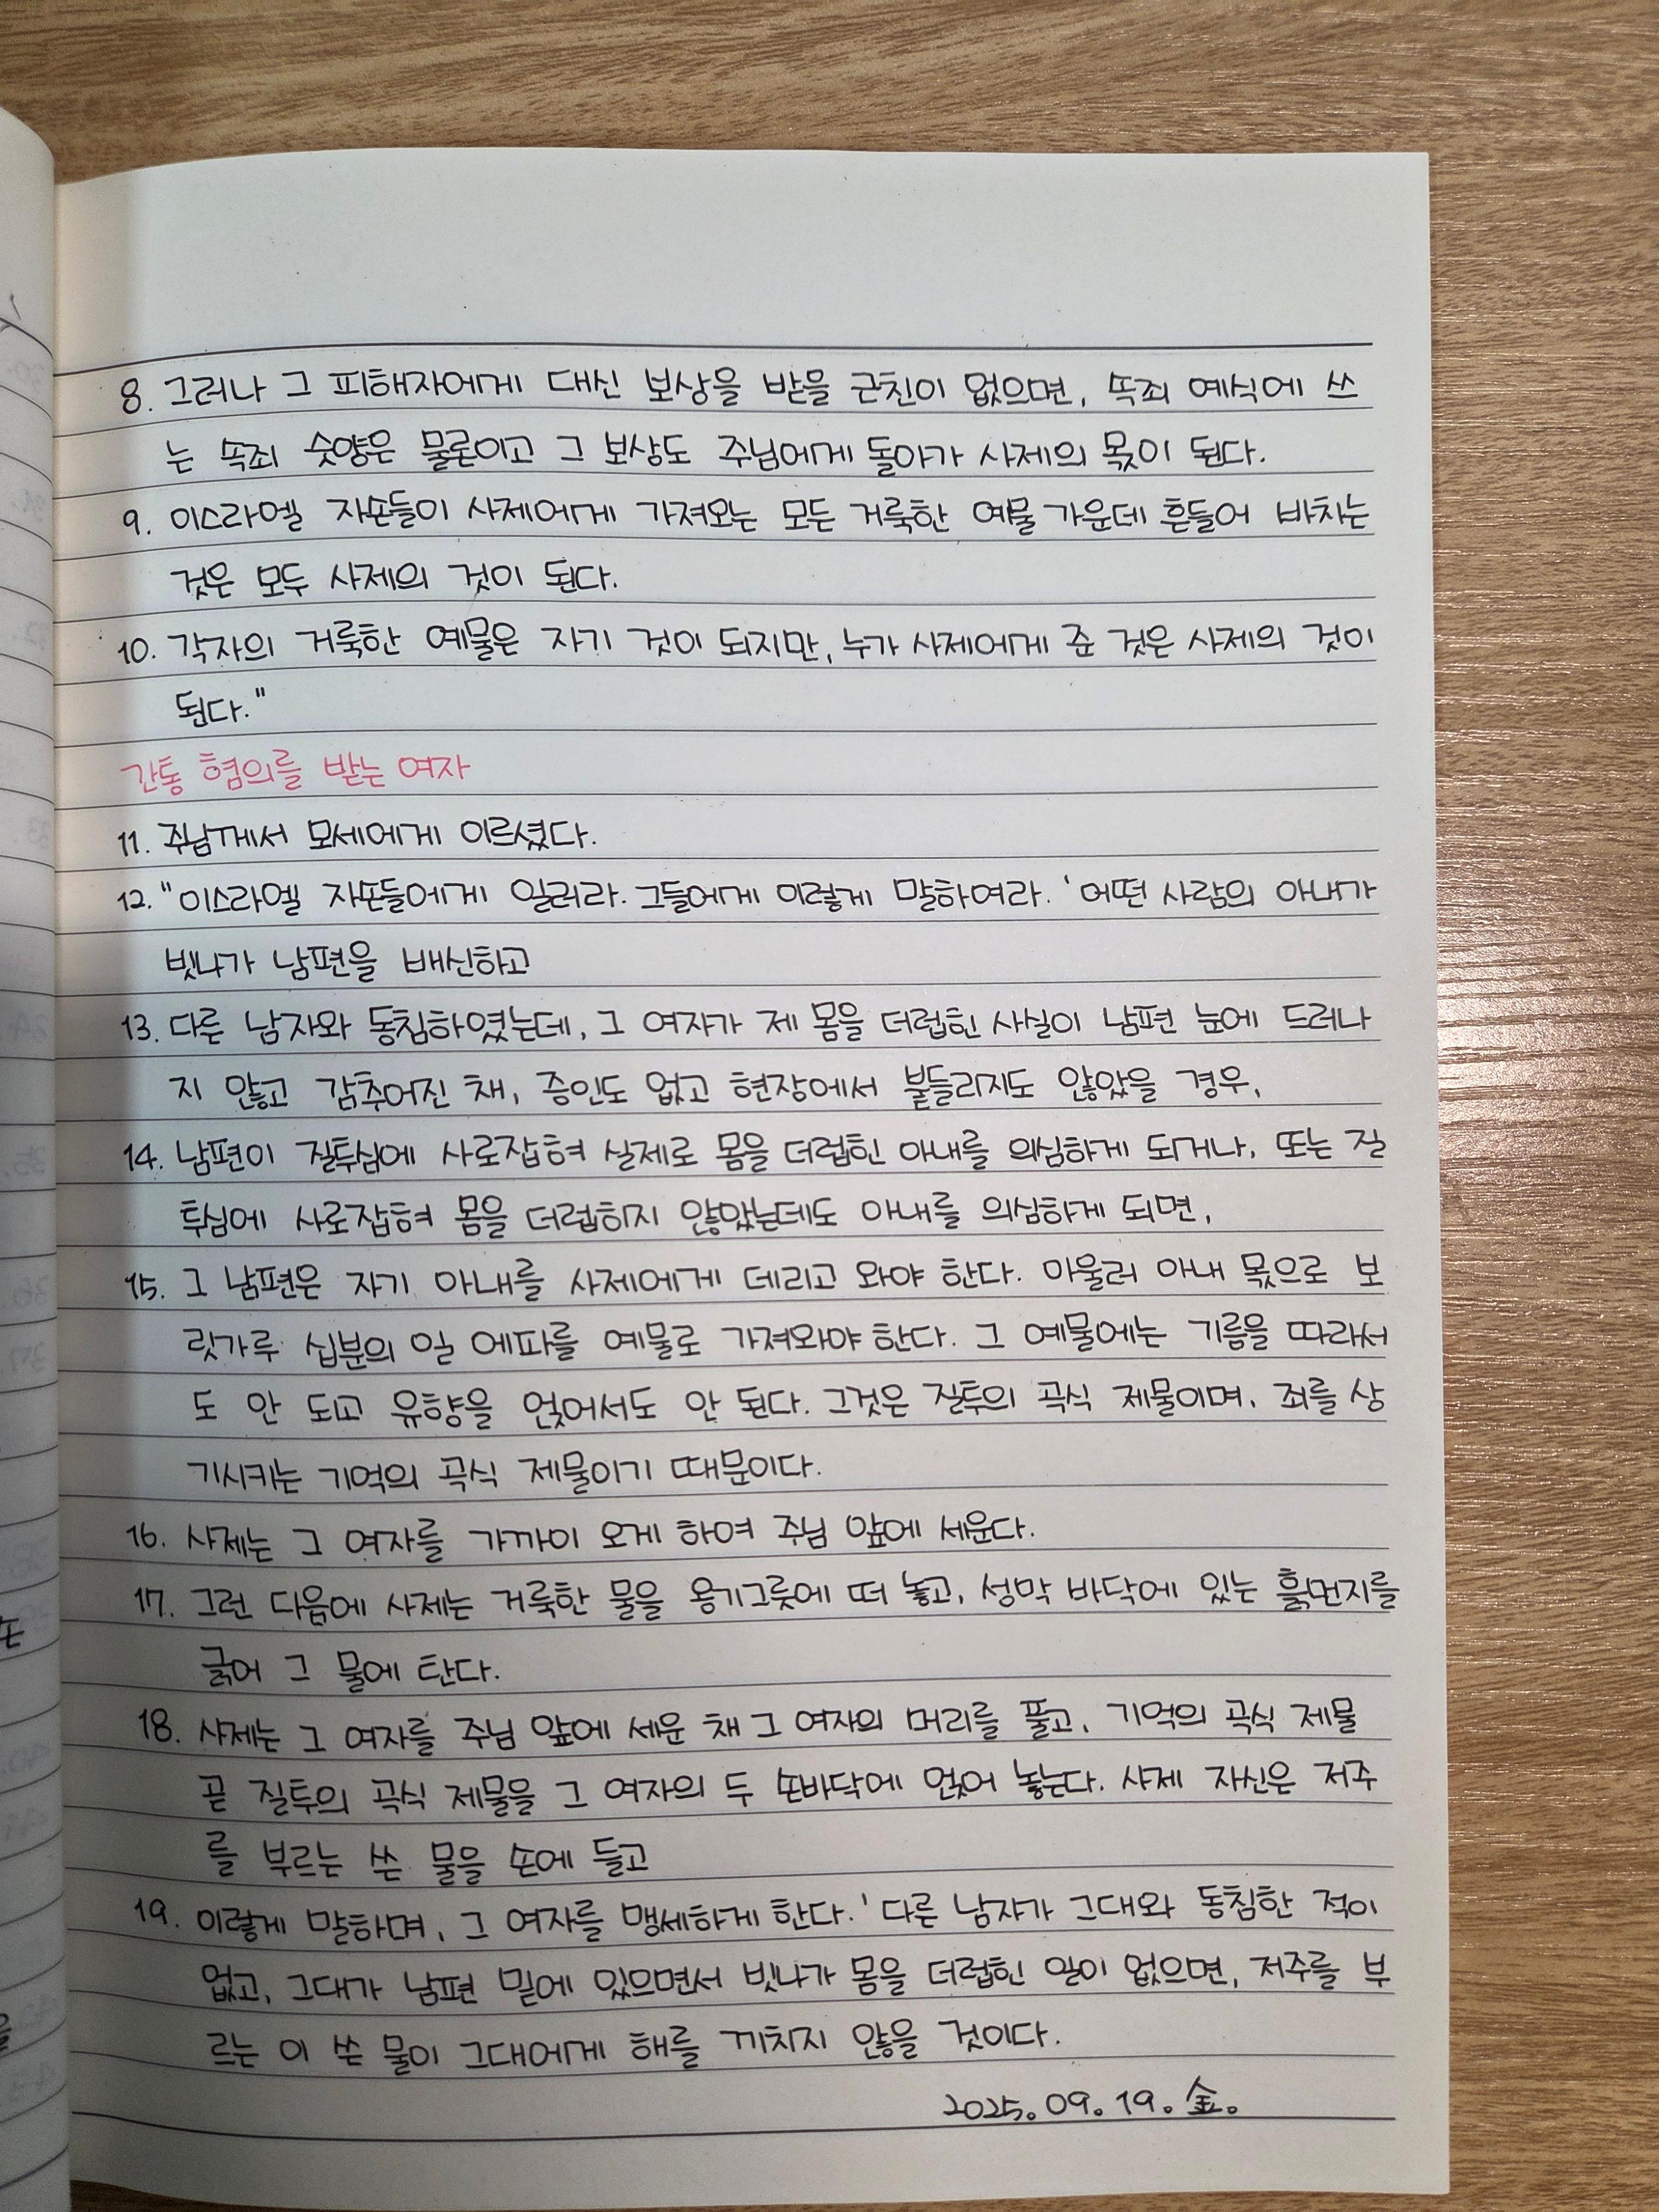 8. 그러나 그 피해자에게 대신 보상을 받을 근친이 없으면, 속죄 예식에 쓰
는 속죄 숫양은 물론이고 그 보상도 주님에게 돌아가 사제의 몫이 된다.
9. 이스라엘 자손들이 사제에게 가져오는 모든 거룩한 예물 가운데 흔들어 바치는
것은 모두 사제의 것이 된다.
10. 각자의 거룩한 예물은 자기 것이 되지만, 누가 사제에게 준 것은 사제의 것이
된다."
간통 혐의를 받는 여자
11. 주님께서 모세에게 이르셨다.
12. "이스라엘 자손들에게 일러라. 그들에게 이렇게 말하여라. '어떤 사람의 아내가
빗나가 남편을 배신하고
13. 다른 남자와 동침하였는데, 그 여자가 제 몸을 더럽힌 사실이 남편 눈에 드러나
지 않고 감추어진 채, 증인도 없고 현장에서 붙들리지도 않았을 경우,
14. 남편이 질투심에 사로잡혀 실제로 몸을 더럽힌 아내를 의심하게 되거나, 또는 질
투심에 사로잡혀 몸을 더럽히지 않았는데도 아내를 의심하게 되면,
15. 그 남편은 자기 아내를 사제에게 데리고 와야 한다. 아울러 아내 몫으로 보
릿가루 십분의 일 에파를 예물로 가져와야 한다. 그 예물에는 기름을 따라서
도 안 되고 유향을 얹어서도 안 된다. 그것은 질투의 곡식 제물이며, 죄를 상
기시키는 기억의 곡식 제물이기 때문이다.
16. 사제는 그 여자를 가까이 오게 하여 주님 앞에 세운다.
17. 그런 다음에 사제는 거룩한 물을 옹기그릇에 떠 놓고, 성막 바닥에 있는 흙먼지를
긁어 그 물에 탄다.
18. 사제는 그 여자를 주님 앞에 세운 채 그 여자의 머리를 풀고, 기억의 곡식 제물
곧 질투의 곡식 제물을 그 여자의 두 손바닥에 얹어 놓는다. 사제 자신은 저주
를 부르는 쓴 물을 손에 들고
19. 이렇게 말하며, 그 여자를 맹세하게 한다. '다른 남자가 그대와 동침한 적이
없고, 그대가 남편 밑에 있으면서 빗나가 몸을 더럽힌 일이 없으면, 저주를 부
르는 이 쓴 물이 그대에게 해를 끼치지 않을 것이다.
2025. 09. 19. 金.